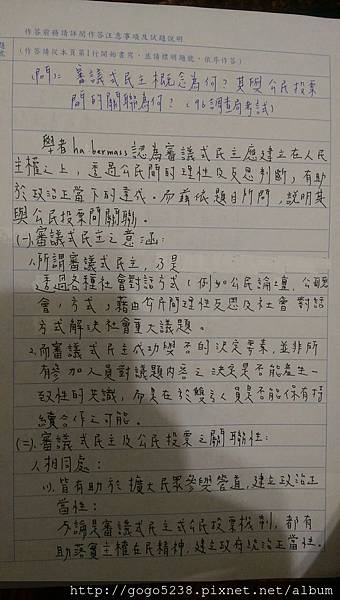 作答前務請詳閱作答注意事項及試題說明
(作答請從本頁第1行開始書寫，並請標明題號，依序作答)
(問): 審議式民主概念為何？其與公民投票
間的關聯為何？(96調查局考試)
學者habermass認為審議式民主應建立在人民
主權之上，透過公民間的理性及反思判斷，有助
於政治正當下的達成。而茲依題目所問，說明其
與公民投票間關聯。
(一).審議式民主之意涵：
1.所謂審議式民主，乃是
透過各種社會對話方式(例如公民論壇、公聽
會，方式，藉由公民間理性反思及社會對話
方式解決社會重大議題。
2.而審議式民主成功與否的決定要素，並非所
有參加人員對議題內容之決定是否能產生一
致性的共識，而是在於雙方人員是否能保有持
續合作之可能。
(二).審議式民主及公民投票之關聯性：
1.相同處：
(1).皆有助於擴大民眾參與管道，建立政治正
當性：
不論是審議式民主或公民投票機制，都有
助落實主權在民精神，建立政府統治正當性。
http://gogo5238.pixnet.net/album